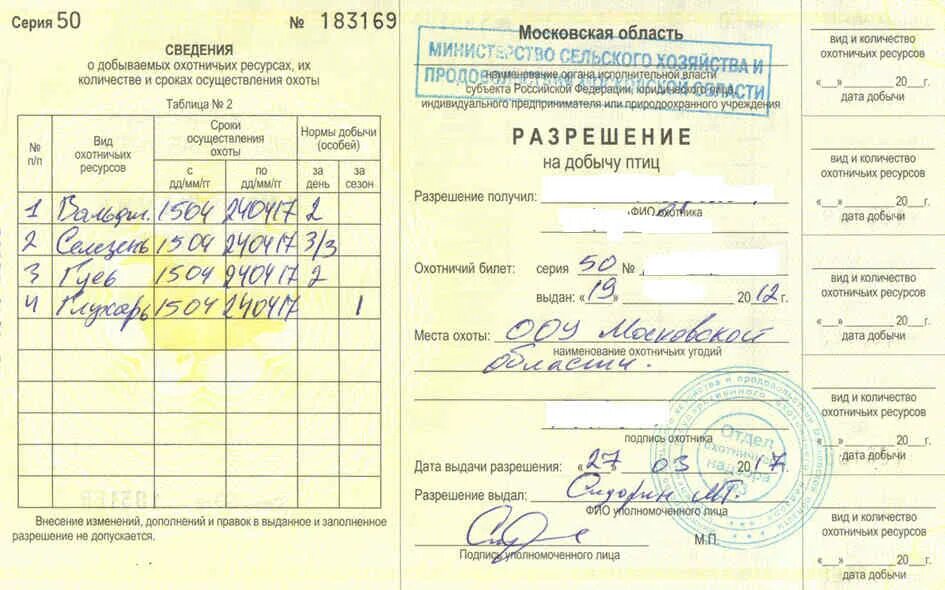 Серия 50 № 183169
СВЕДЕНИЯ
о добываемых охотничьих ресурсах, их
количестве и сроках осуществления охоты
Таблица № 2
№ п/п
Вид охотничьих ресурсов
Сроки осуществления охоты
Нормы добычи (особей)
с дд/мм/гг
по дд/мм/гг
за день
за сезон
1 Вальдш. 1504 240417 2
2 Селезень 1504 240417 3/3
3 Гусь 1504 240417 2
4 Глухарь 1504 240417 1
Внесение изменений, дополнений и правок в выданное и заполненное
разрешение не допускается.
Московская область
МИНИСТЕРСТВО СЕЛЬСКОГО ХОЗЯЙСТВА И
ПРОДОВОЛЬСТВИЯ МОСКОВСКОЙ ОБЛАСТИ
наименование органа исполнительной власти
субъекта Российской Федерации, юридического лица,
индивидуального предпринимателя или природоохранного учреждения
РАЗРЕШЕНИЕ
на добычу птиц
Разрешение получил:
ФИО охотника
Охотничий билет: серия 50 №
выдан: «19» 2012 г.
Места охоты: ООУ Московской
наименование охотничьих угодий
области.
подпись охотника
Дата выдачи разрешения: «27» 03 2017 г.
Разрешение выдал: Сидорин М.Г.
ФИО уполномоченного лица
Подпись уполномоченного лица
М.П.
Отдел
охотничьего
надзора
вид и количество
охотничьих ресурсов
«__» ________ 20__г.
дата добычи
вид и количество
охотничьих ресурсов
«__» ________ 20__г.
дата добычи
вид и количество
охотничьих ресурсов
«__» ________ 20__г.
дата добычи
вид и количество
охотничьих ресурсов
«__» ________ 20__г.
дата добычи
вид и количество
охотничьих ресурсов
«__» ________ 20__г.
дата добычи